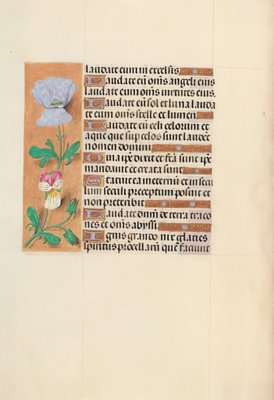 laudate eum in excelsis
Laudate eū om̄s angeli eius
laudate eum om̄s virtutes eius.
Laudate eū sol et luna lauda
te eum om̄s stelle et lumen
Laudate eū celi celorum et
aque que sup celos sunt laudēt
nomen domini
Quia ipē dixit et fc̄a sunt ipē
mandavit et creata sunt
Statuit ea in eternū et in seculū
seculi preceptum posuit et
non preteribit
Laudate dnm̄ de terra draco
nes et om̄s abyssi
Ignis grando nix glacies
spiritus procellarū que faciunt